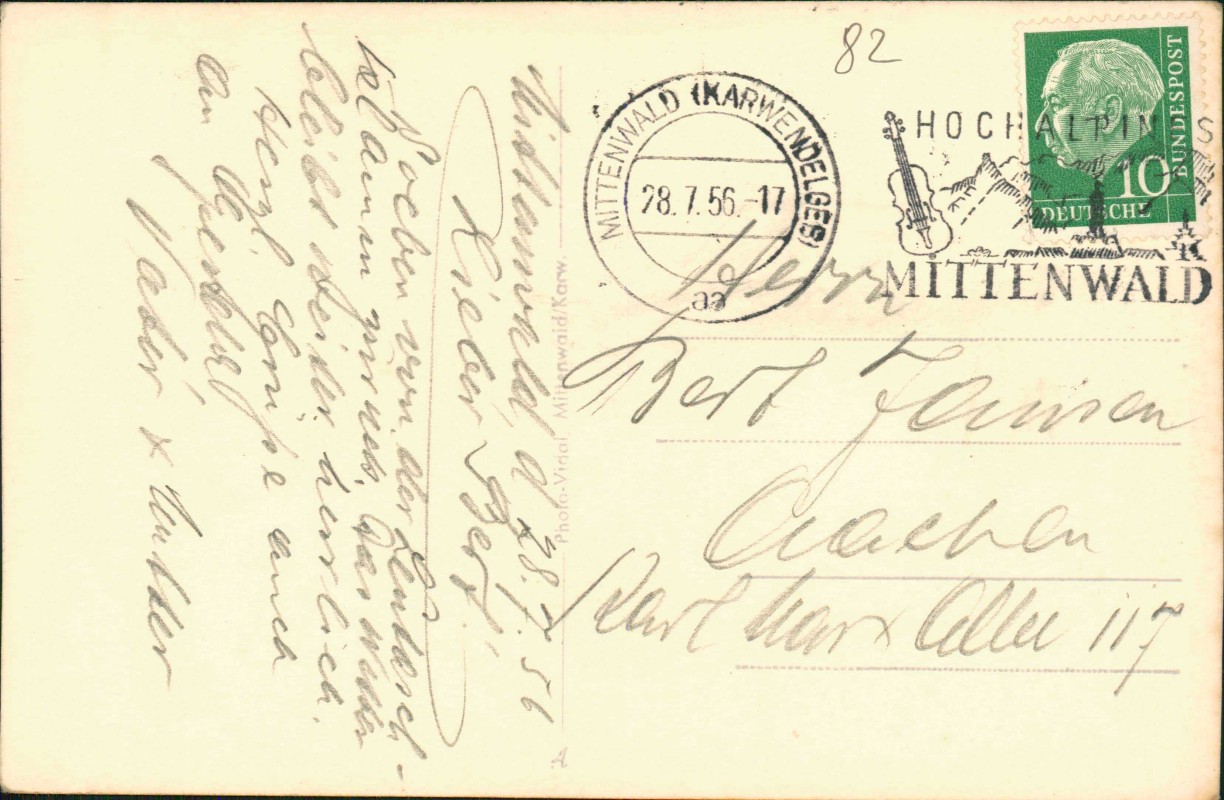 82
MITTENWALD (KARWENDELGEB)
28.7.56.-17
aa
HOCHALPINES
MITTENWALD
DEUTSCHE
BUNDESPOST
10
Herrn
Bert Jansen
Aachen
Karl Marx Allee 117
Photo-Vidal Mittenwald/Karw.
Mittenwald, d. 28.7.56
Lieber Bert!
Soeben von der
zurück, das Wetter
bleibt weiter herrlich.
Herzl. Grüße auch
an
Vader & Mutter